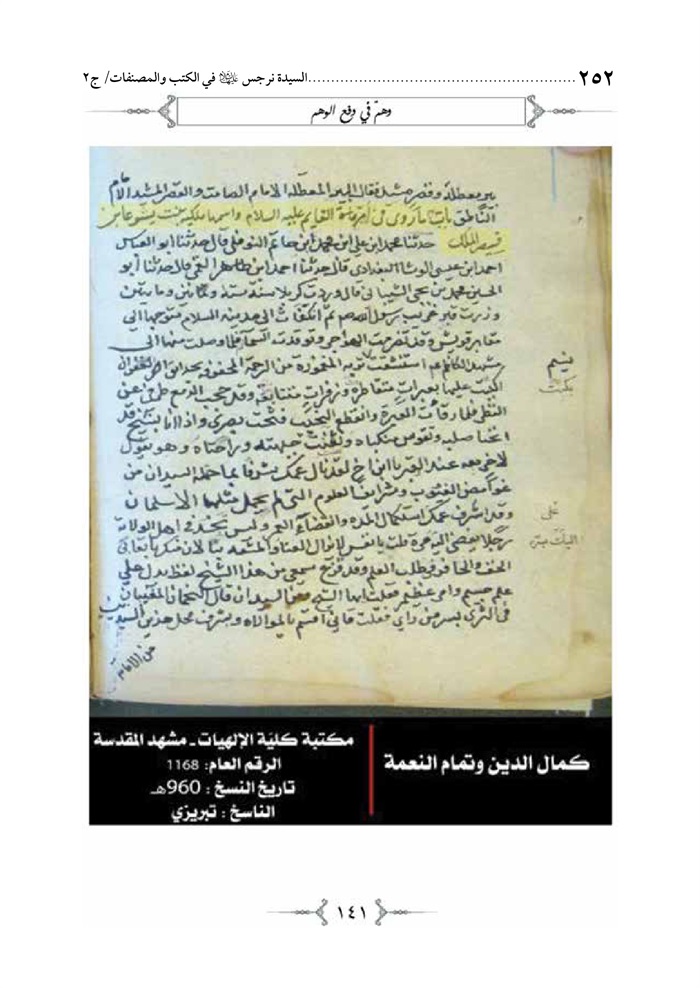 ٢٥٢ .......................................................... السيدة نرجس في الكتب والمصنفات/ ج٢
وهمٌ في دفع الوهم
بئر معطلة وقصر مشيد قال البئر المعطلة الامام الصامت والقصر المشيد الامام
الناطق باب ما روي في ام القايم عليه السلام واسمها مليكه بنت يشوعا بن
قيصر الملك حدثنا محمد بن علي ابن محمد ابن حاتم النوفلي قال حدثنا ابو العباس
احمد ابن عيسى الوشاء البغدادي قال حدثنا احمد ابن طاهر القمي قال حدثنا ابو
الحسين محمد بن يحيى الشيباني قال وردت كربلا سنة ستة وثمانين ومايتين
وزرت قبر غريب رسول الله صم ثم انكفأت الى مدينة السلام متوجها الى
مقابر قريش وقد تضرمت الهواجر وتوقدت السماء فلما وصلت منها الى
مشهد الكاظم عم استنشقت تربه المغمورة من الرحمة المحفوفة بحدايق الغفران
اكببت عليها بعبرات متقاطرة وزفرات متتابعة وقد حجب الدمع طرفي عن
النظر فلما رقأت العبرة وانقطع النحيب فتحت بصري واذا انا بشيخ قد
انحنا صلبه وتقوس منكباه وثفنت جبهته وراحتاه وهو يقول
لاخر معه عند القبر يا ابن اخ لقد نال عمك شرفا بما حمله السيدان من
غوامض الغيوب وشرايف العلوم التي لم يحمل مثلها الا سلمان
وقد اشرف عمك استكمال المدة وانقضاء العمر وليس يجد في اهل الولاية
رجلا يفضي اليه قلت يا نفس لا يزال العنا والمشقة ينالان منك باتعابي
الخف والحافر في طلب العلم وقد قرع سمعي من هذا الشيخ لفظ يدل على
علم جسيم وامر عظيم فقلت ايها الشيخ ومن السيدان قال النجمان المغيبان
في الثرى بسر من راي فقلت فاني اقسم بالموالاة وبشرف محل هذين السيدين
من الامامة
كمال الدين وتمام النعمة
مكتبة كلية الإلهيات ـ مشهد المقدسة
الرقم العام: 1168
تاريخ النسخ : 960هـ
الناسخ : تبريزي
١٤١